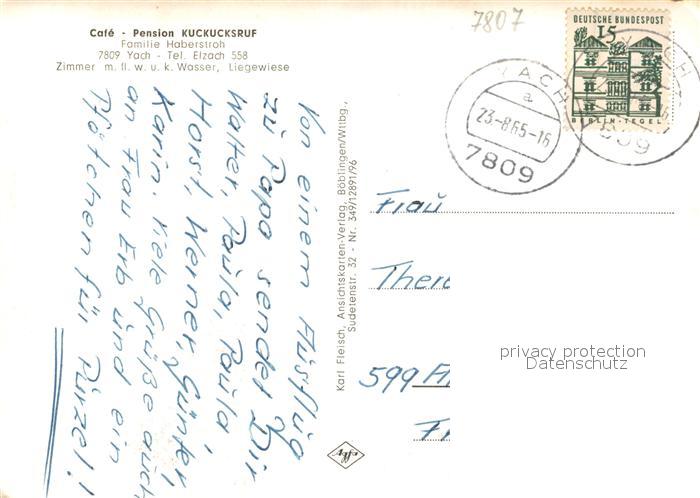 7807
Café - Pension KUCKUCKSRUF
Familie Haberstroh
7809 Yach - Tel. Elzach 558
Zimmer m. fl. w. u. k. Wasser, Liegewiese
DEUTSCHE BUNDESPOST
15
BERLIN-TEGEL
YACH
a
23-8.65-16
7809
YACH
809
Von einem Ausflug
zu Papa sendet Dir
Walter, Paula, Paula,
Horst, Werner, Günter,
Karin. Viele Grüße auch
an Frau Erb und ein
Pfötchen für Purzel!
Karl Fleisch, Ansichtskarten-Verlag, Böblingen/Wttbg.,
Sudetenstr. 32 - Nr. 349/12891/96
Agfa
Frau
There
599
privacy protection
Datenschutz